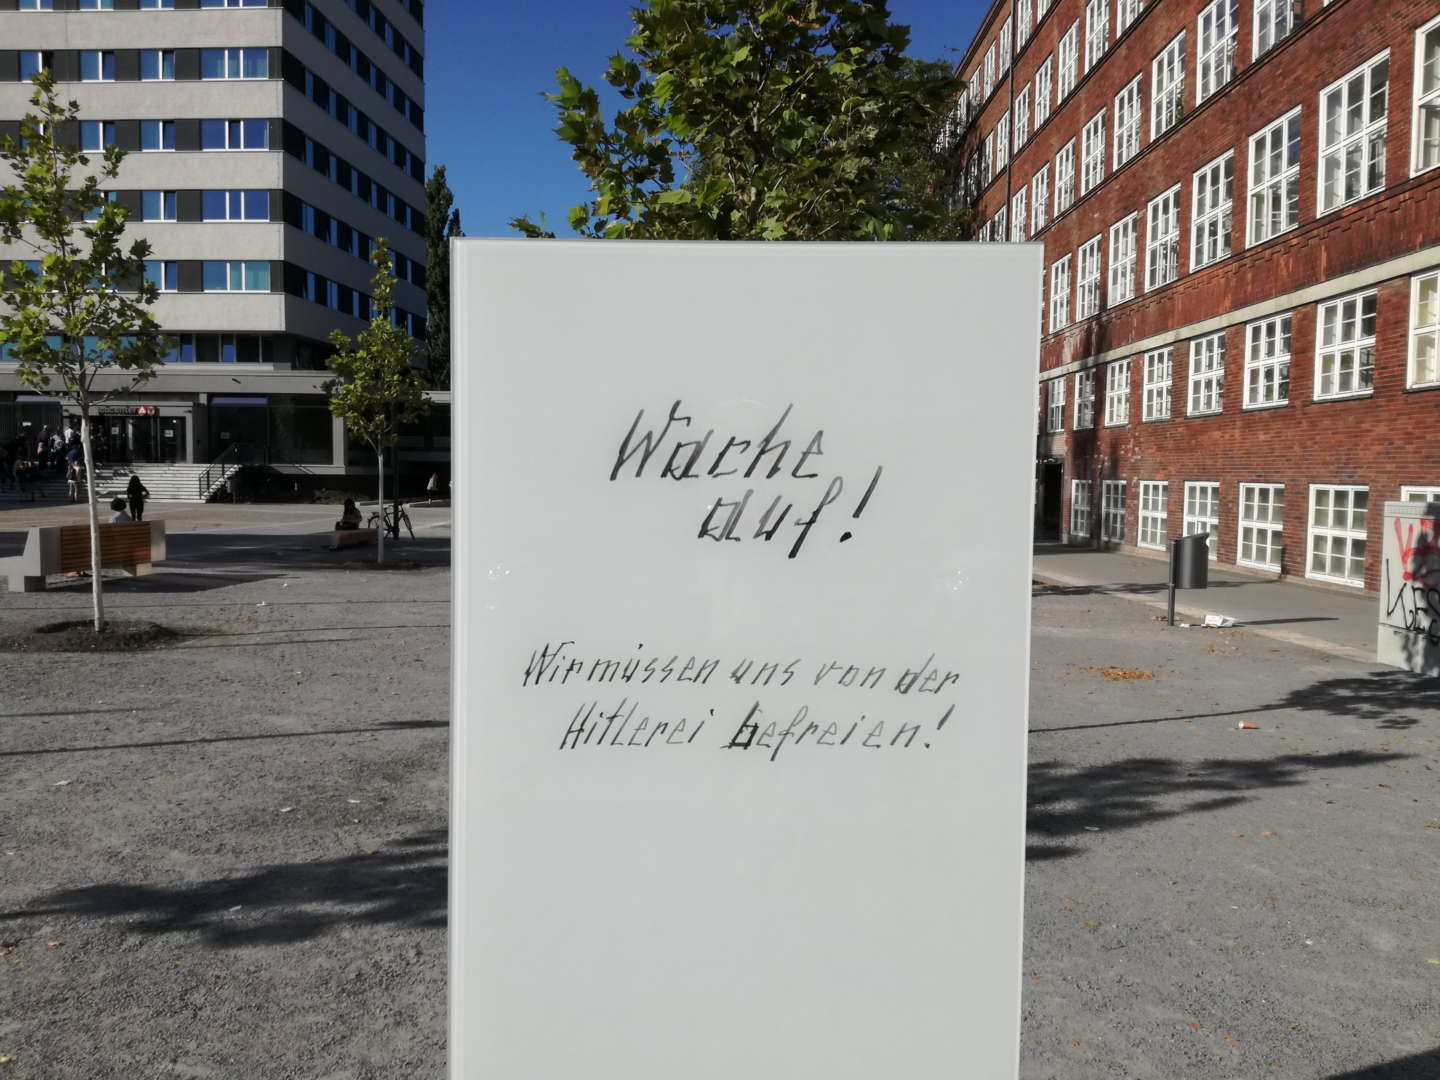 Wache
auf!
Wir müssen uns von der
Hitlerei befreien!